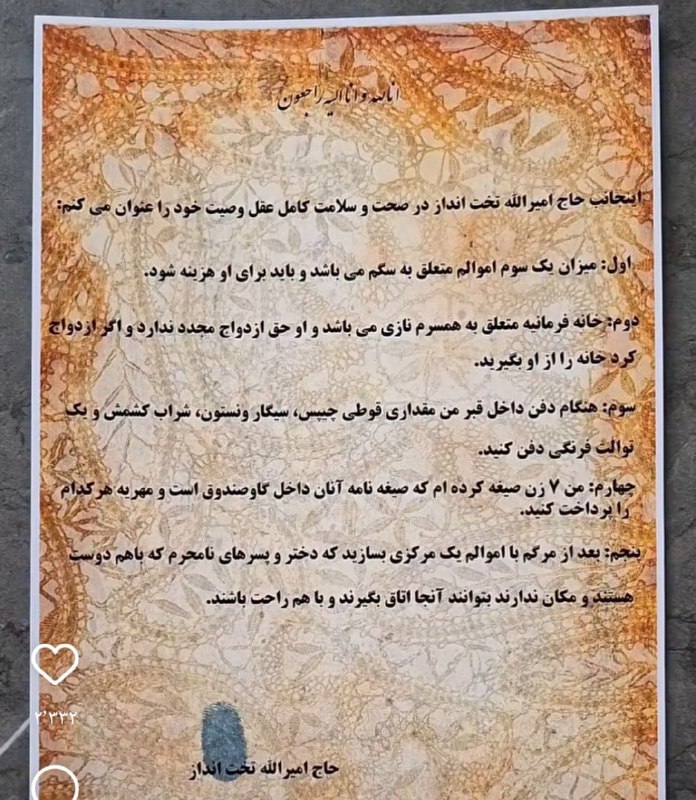 انالله و انا الیه راجعون
اینجانب حاج امیرالله تخت انداز در صحت و سلامت کامل عقل وصیت خود را عنوان می کنم:
اول: میزان یک سوم اموالم متعلق به سگم می باشد و باید برای او هزینه شود.
دوم: خانه فرمانیه متعلق به همسرم نازی می باشد و او حق ازدواج مجدد ندارد و اگر ازدواج
کرد خانه را از او بگیرید.
سوم: هنگام دفن داخل قبر من مقداری قوطی چیپس، سیگار ونستون، شراب کشمش و یک
توالت فرنگی دفن کنید.
چهارم: من ۷ زن صیغه کرده ام که صیغه نامه آنان داخل گاوصندوق است و مهریه هرکدام
را پرداخت کنید.
پنجم: بعد از مرگم با اموالم یک مرکزی بسازید که دختر و پسرهای نامحرم که باهم دوست
هستند و مکان ندارند بتوانند آنجا اتاق بگیرند و با هم راحت باشند.
۲٬۳۳۲
حاج امیرالله تخت انداز